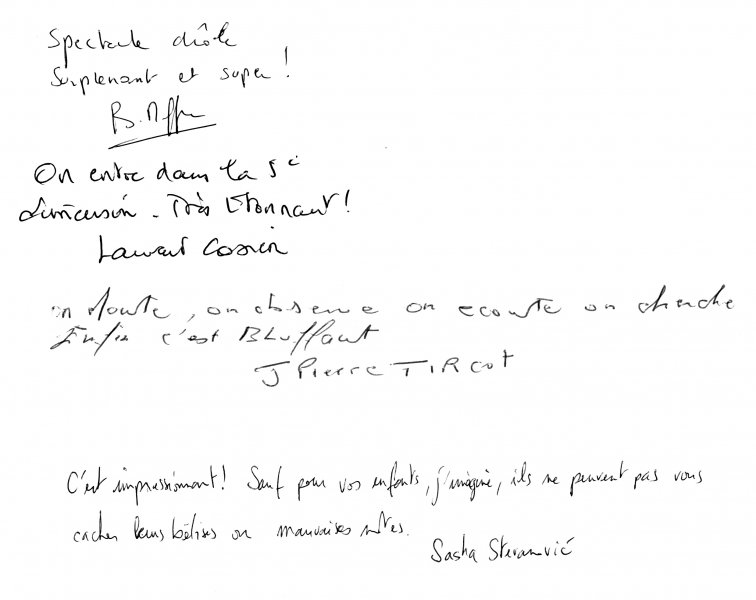 Spectacle drôle
Surprenant et super !
On entre dans la 5e
dimension. Très Etonnant !
Laurent
on doute, on observe on ecoute on cherche
Enfin c'est BLuffant
J PIerre TIRcot
C'est impressionnant ! Sauf pour vos enfants, j'imagine, ils ne peuvent pas vous
cacher leurs bêtises ou mauvaises notes.
Sasha Stevanović